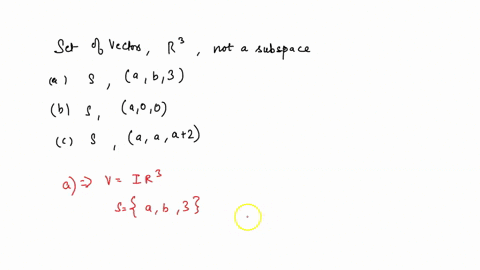 Set of Vector, R³, not a subspace
(a) S, (a, b, 3)
(b) S, (a, 0, 0)
(c) S, (a, a, a+2)
a) ⇒ V = IR³
S = { a, b, 3 }